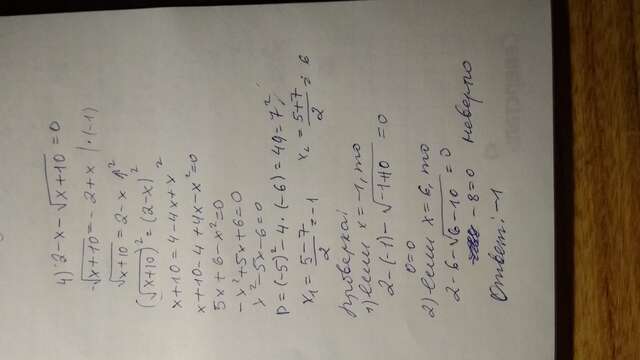 4) 2-x-√x+10=0
-√x+10=-2+x |·(-1)
√x+10=2-x |²
(√x+10)²=(2-x)²
x+10=4-4x+x²
x+10-4+4x-x²=0
5x+6-x²=0
-x²+5x+6=0
x²-5x-6=0
D=(-5)²-4·(-6)=49=7²;
x₁=5-7/2=-1 x₂=5+7/2=6
Проверка:
1) если x=-1, то
2-(-1)-√-1+10=0
0=0
2) если x=6, то
2-6-√6-10=0
-8=0 неверно
Ответ: -1